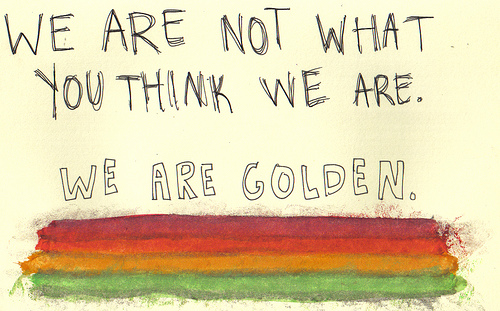 WE ARE NOT WHAT
YOU THINK WE ARE.
WE ARE GOLDEN.